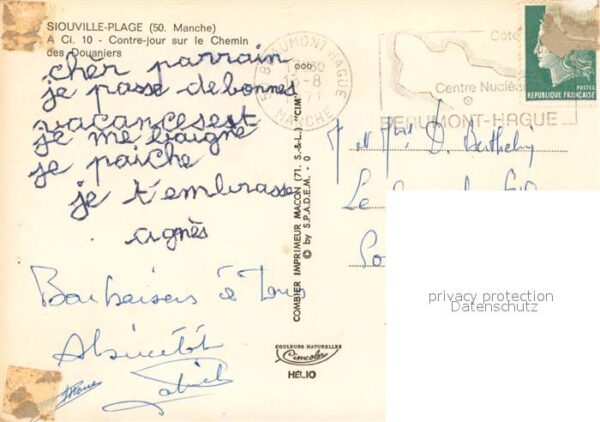 SIOUVILLE-PLAGE (50. Manche)
A Ci. 10 - Contre-jour sur le Chemin
des Douaniers
chèr parrain
je passe de bonnes
vacances est
je me baigne
je paiche
je t'embrasse
agnès
Bons baisers à Tous
A bientôt
COMBIER IMPRIMEUR MACON (71. S.-&-L.) "CIM"
© by S.P.A.D.E.M. - O
COULEURS NATURELLES
Cimcolor
HÉLIO
BEAUMONT-HAGUE
MANCHE
Côte
Centre Nucléaire
BEAUMONT-HAGUE
POSTES
REPUBLIQUE FRANÇAISE
D.
privacy protection
Datenschutz